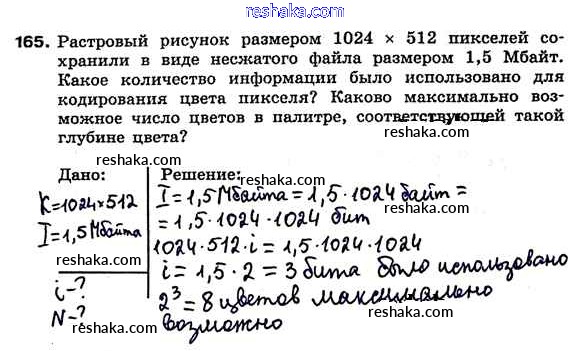 reshaka.com
165. Растровый рисунок размером 1024 × 512 пикселей со-
хранили в виде несжатого файла размером 1,5 Мбайт.
Какое количество информации было использовано для
кодирования цвета пикселя? Каково максимально воз-
можное число цветов в палитре, соответствующей такой
глубине цвета?
reshaka.com
reshaka.com
reshaka.com
reshaka.com
Дано: Решение:
reshaka.com
K=1024×512 I=1,5Мбайта=1,5·1024 байт=
=1,5·1024·1024 бит
I=1,5Мбайта 1024·512·i=1,5·1024·1024
reshaka.com
i=1,5·2=3 бита было использовано
i-? 2³=8 цветов максимально
N-? возможно
reshaka.com
reshaka.com
reshaka.com